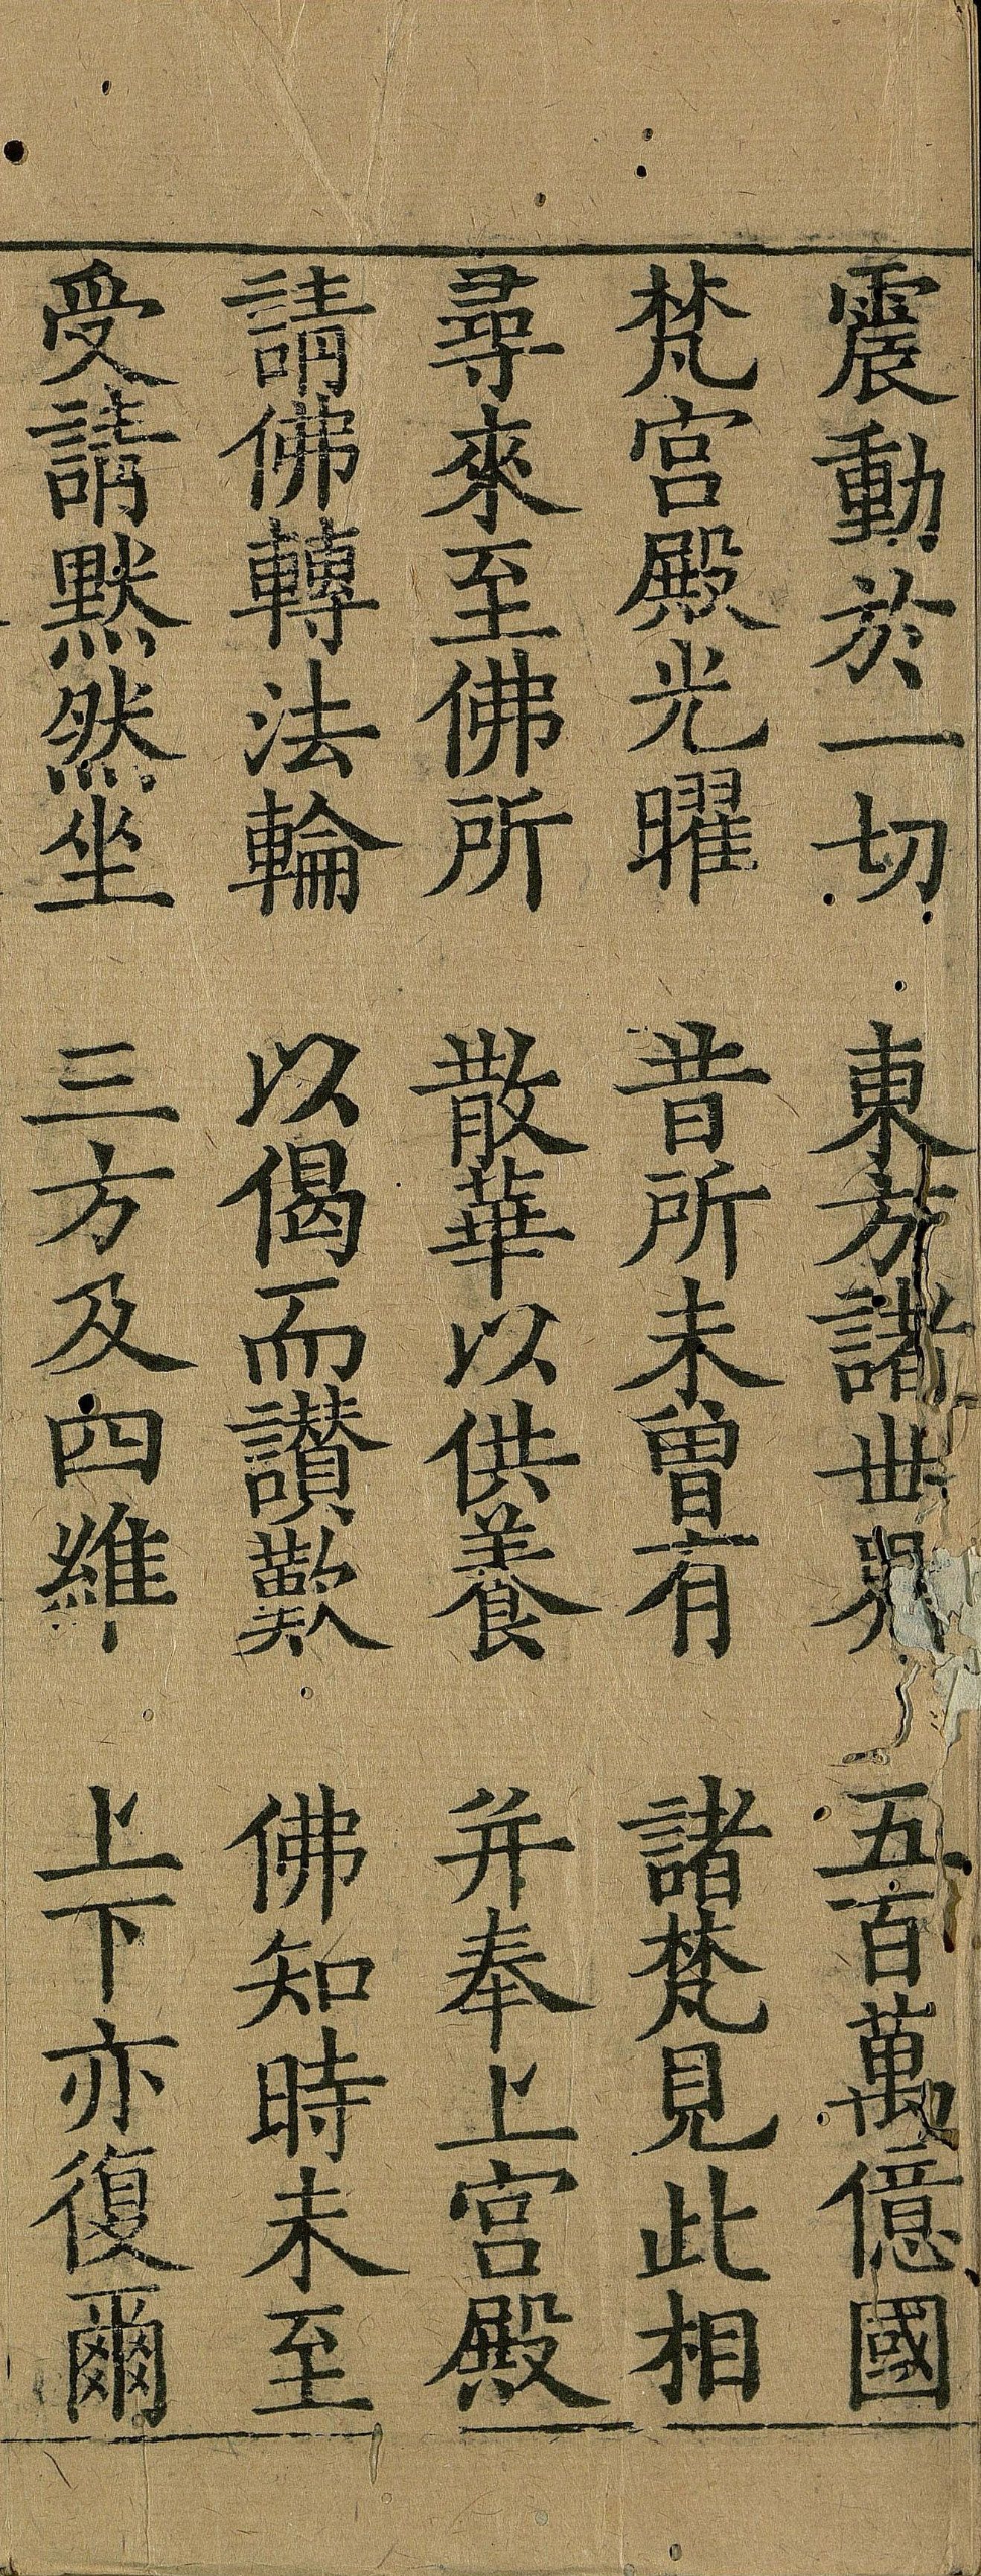 震動於一切　東方諸世界　五百萬億國
梵宮殿光曜　昔所未曾有　諸梵見此相
尋來至佛所　散華以供養　并奉上宮殿
請佛轉法輪　以偈而讚歎　佛知時未至
受請默然坐　三方及四維　上下亦復爾